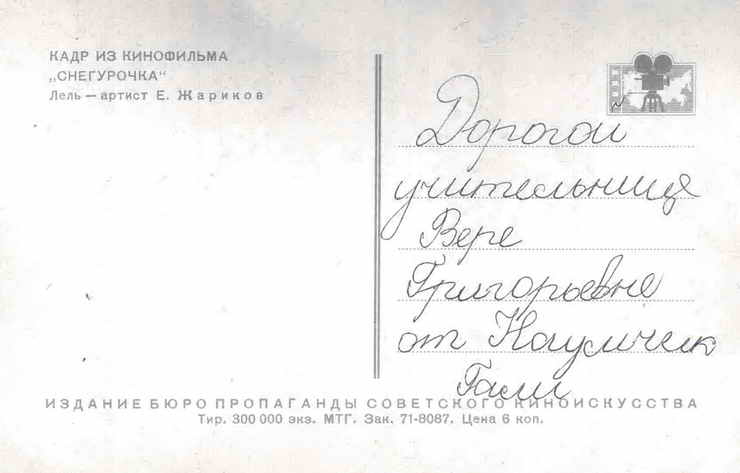 КАДР ИЗ КИНОФИЛЬМА
„СНЕГУРОЧКА“
Лель — артист Е. Жариков
Дорогой
учительнице
Вере
Григорьевне
от Наумчек
Гали
ИЗДАНИЕ БЮРО ПРОПАГАНДЫ СОВЕТСКОГО КИНОИСКУССТВА
Тир. 300 000 экз. МТГ. Зак. 71-8087. Цена 6 коп.